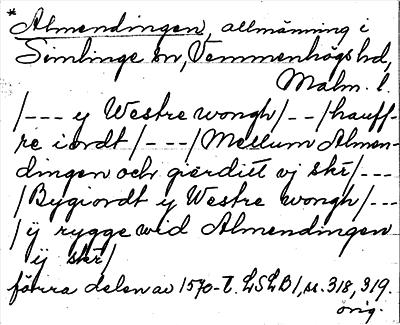 * Almendingen, allmänning i
Simlinge sn, Vemmenhögs hd,
Malm. l.
/--- y Westre wongh/--/hauff-
re iordt/---/Mellum Almen-
dingen och gierdiet vj skr/---
/Bygiordt y Westre wongh/---
/ÿ rygge wid Almendingen
ÿ skr/
förra delen av 1570-t. LSLB 1, s. 318, 319.
orig.